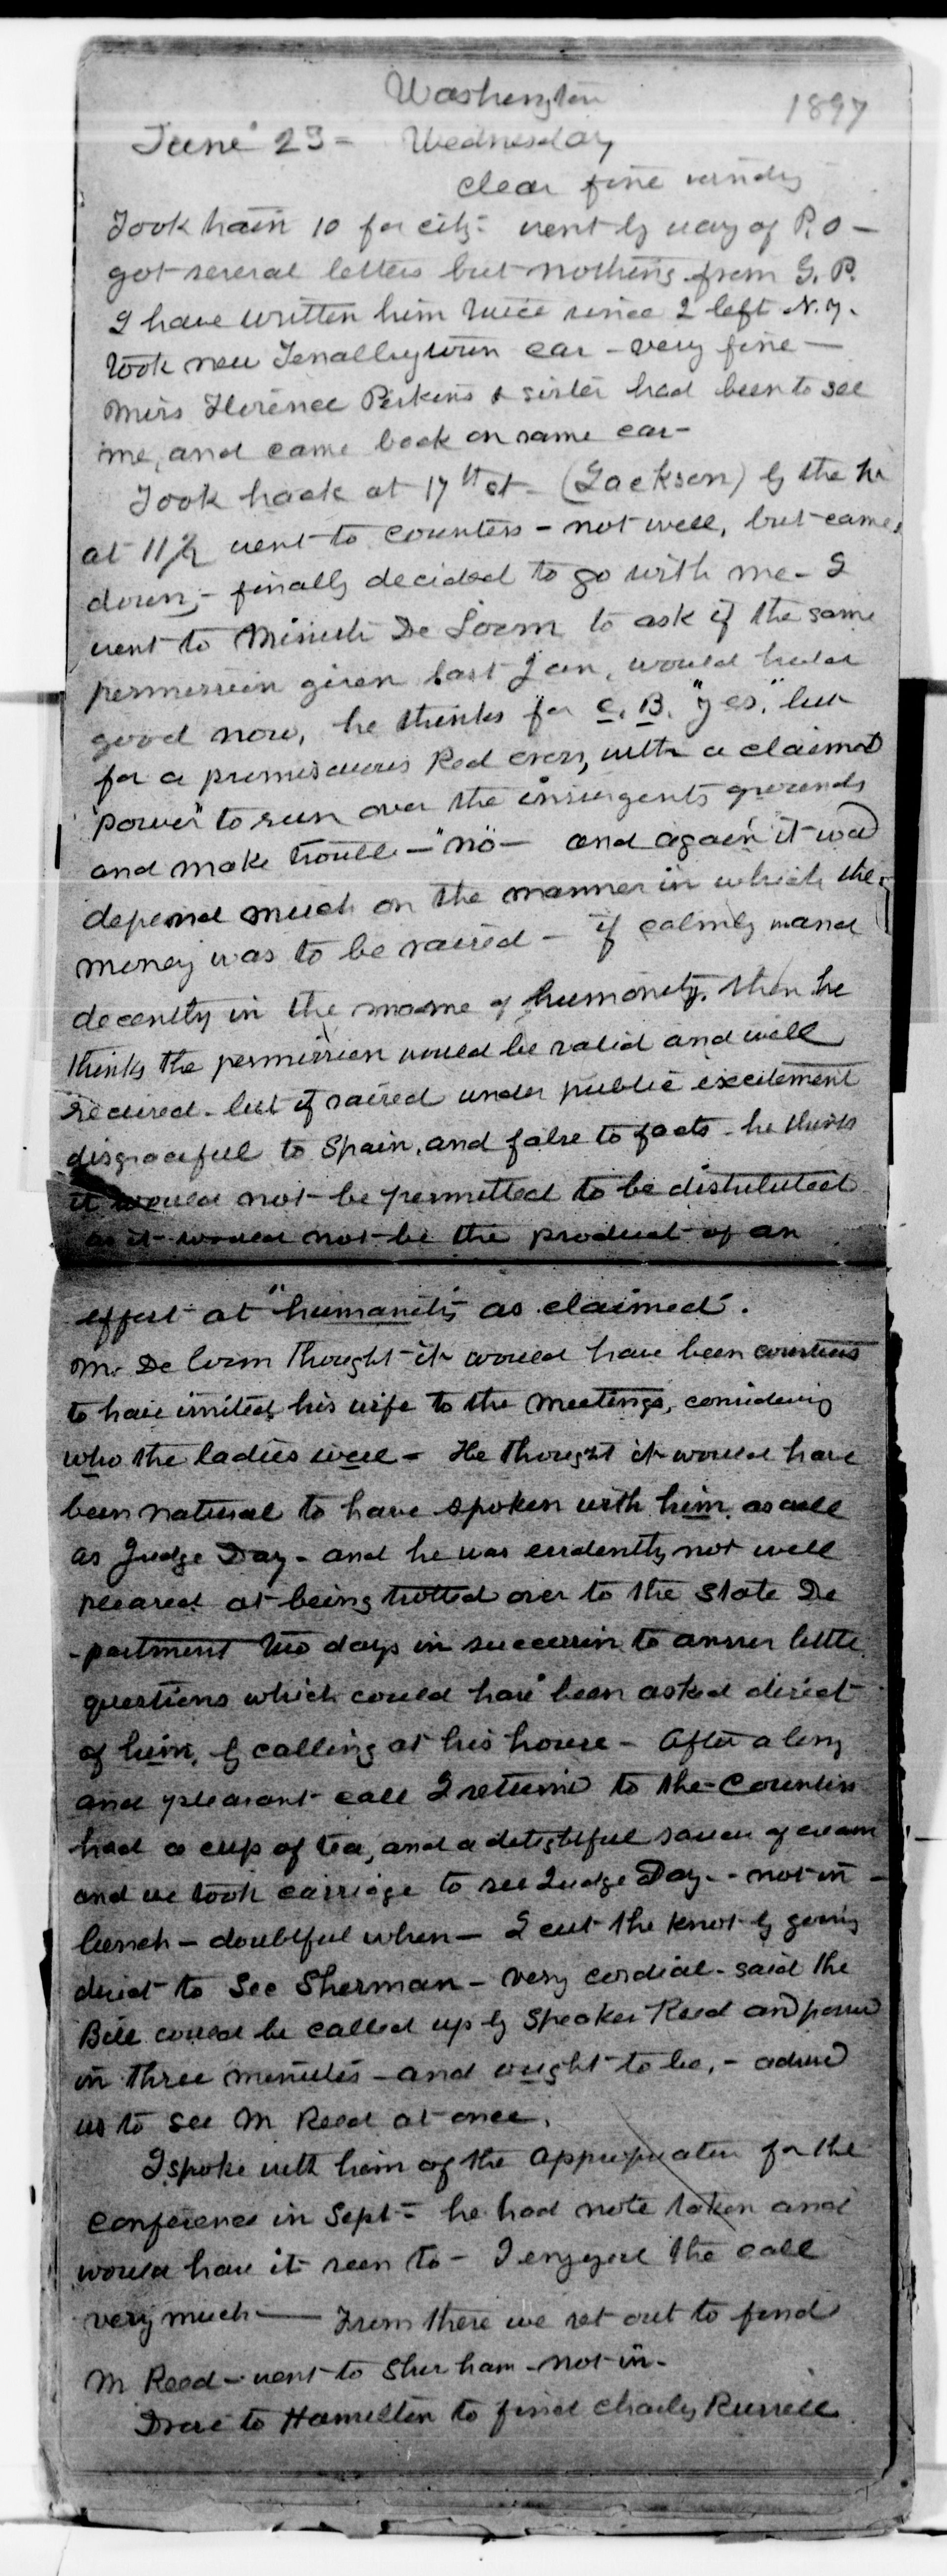 Washington
1897
June 23 = Wednesday
clear fine windy
Took train 10 for city - went by way of P.O -
got several letters but nothing from G. P.
I have written him twice since I left N.Y.
Took new Tenallytown car - very fine -
Miss Florence Perkins & sister had been to see
me, and came back on same car -
Took hack at 17th st - (Jackson) by the hr
at 11½ went to Countess - not well, but came
down, - finally decided to go with me - I
went to Minister De Lorm to ask if the same
permission given last Jan, would hold
good now, he thinks for C. B. "yes," but
for a promiscuous Red cross, with a claimed
"power" to run over the insurgents grounds
and make trouble - "no" - and again it wd
depend much on the manner in which the
money was to be raised - if calmly and
decently in the name of humanity, then he
thinks the permission would be valid and well
received - but if raised under public excitement
disgraceful to Spain, and false to facts - he thinks
it would not be permitted to be distributed
as it would not be the product of an
effort at "humanity" as claimed.
Mr De Lorm thought it would have been courteous
to have invited his wife to the meetings, considering
who the ladies were - He thought it would have
been natural to have spoken with him, as well
as Judge Day - and he was evidently not well
pleased at being trotted over to the State De
-partment two days in succession to answer little
questions which could have been asked direct
of him, by calling at his house - After a long
and pleasant call I returned to the Countess
had a cup of tea, and a delightful saucer of cream
and we took carriage to see Judge Day - not in -
lunch - doubtful when - I cut the knot by going
direct to Sec Sherman - very cordial - said the
Bill could be called up by Speaker Reed and passed
in three minutes - and ought to be, - advised
us to see Mr Reed at once.
I spoke with him of the appropriation for the
conference in Sept = he had note taken and
would have it seen to - I enjoyed the call
very much - From there we set out to find
Mr Reed - went to Shorham - not in -
Drove to Hamilton to find Charley Russell